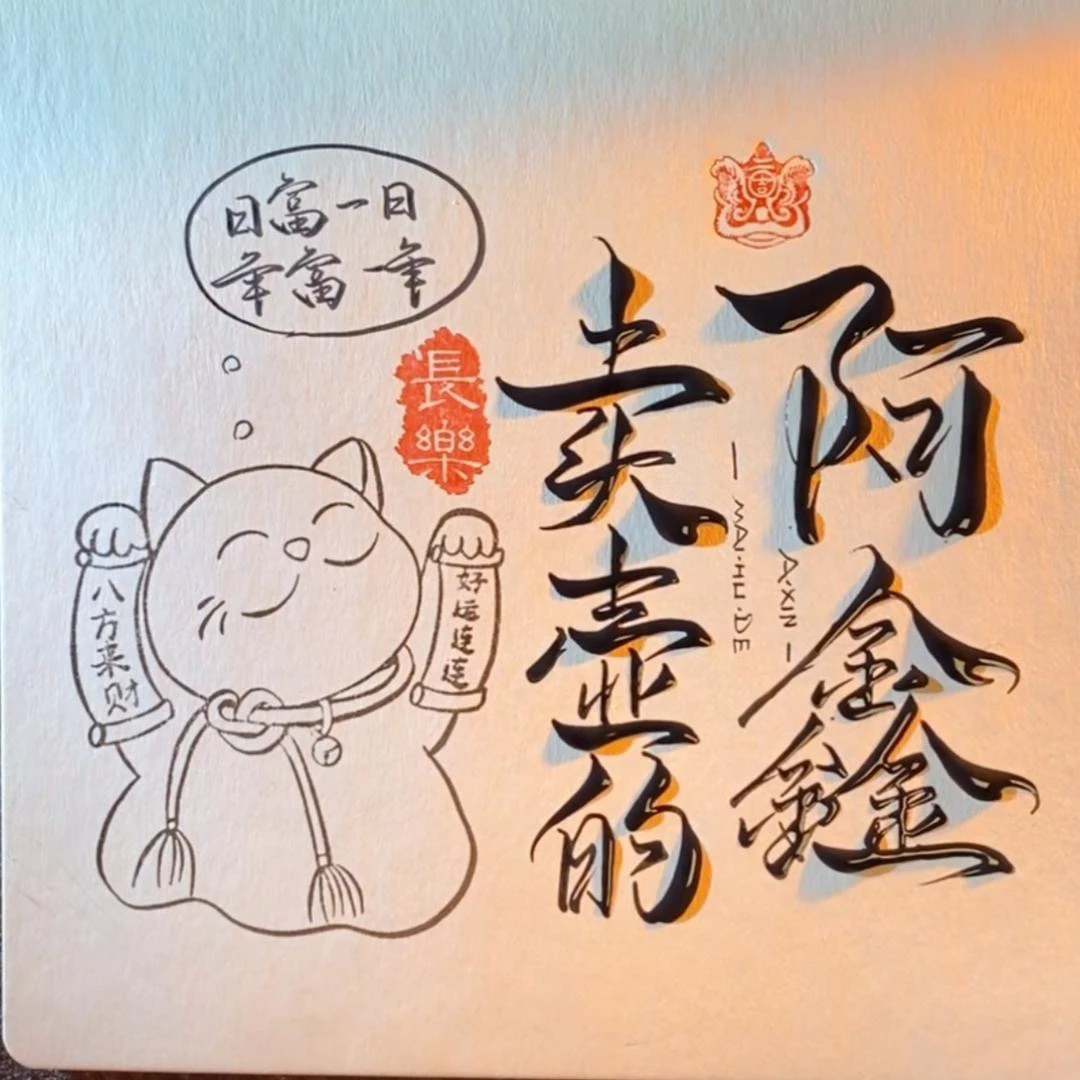 阿鑫
A·XIN —
— MAI·HU·DE
卖壶的
長樂
日富一日
年富一年
好运连连
八方来财